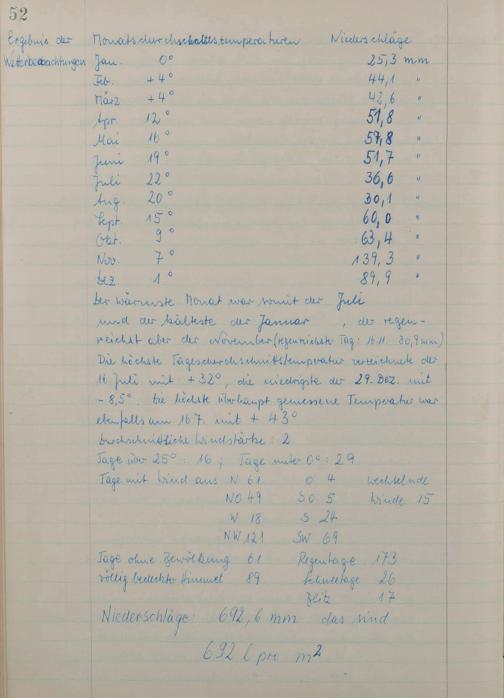 52
Ergebnis der Monatsdurchschnittstemperaturen Niederschläge
Wetterbeobachtungen Jan. 0° 25,3 mm
Feb. +4° 44,1 "
März +4° 42,6 "
Apr. 12° 51,8 "
Mai 16° 57,8 "
Juni 19° 51,7 "
Juli 22° 36,6 "
Aug. 20° 30,1 "
Sept. 15° 60,0 "
Okt. 9° 63,4 "
Nov. 7° 139,3 "
Dez. 1° 89,9 "
Der wärmste Monat war somit der Juli
und der kälteste der Januar, der regen-
reichst aber der November (regenreichster Tag: 16.11. 30,9 mm)
Die höchste Tagesdurchschnittstemperatur verzeichnete der
16 Juli mit +32°, die niedrigste der 29. Dez. mit
-8,5°. Die höchste überhaupt gemessene Temperatur war
ebenfalls am 16.7. mit +43°
Durchschnittliche Windstärke: 2
Tage über 25°: 16; Tage unter 0°: 29
Tage mit Wind aus N 61 O 4 wechselnde
NO 49 SO 5 Winde 15
W 18 S 24
NW 121 SW 69
Tage ohne Bewölkung 61 Regentage 173
völlig bedeckter Himmel 89 Schneetage 26
Blitz 17
Niederschläge: 692,6 mm das sind
692 l pro m²